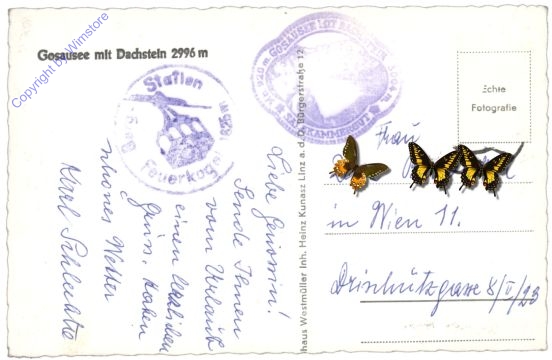 Gosausee mit Dachstein 2996 m
Copyright by Wimstore
Station
Feuerkogel
GOSAUSEE MIT DACHSTEIN
SALZKAMMERGUT
haus Westmüller Inh. Heinz Kunasz Linz a. d. D. Bürgerstraße 12
Echte
Fotografie
Liebe Genossin!
Sende Ihnen
vom Urlaub
einen herzlichen
Gruss. Haben
schönes Wetter
Karl
Frau
in Wien 11.
Drischützgasse 8/II/23